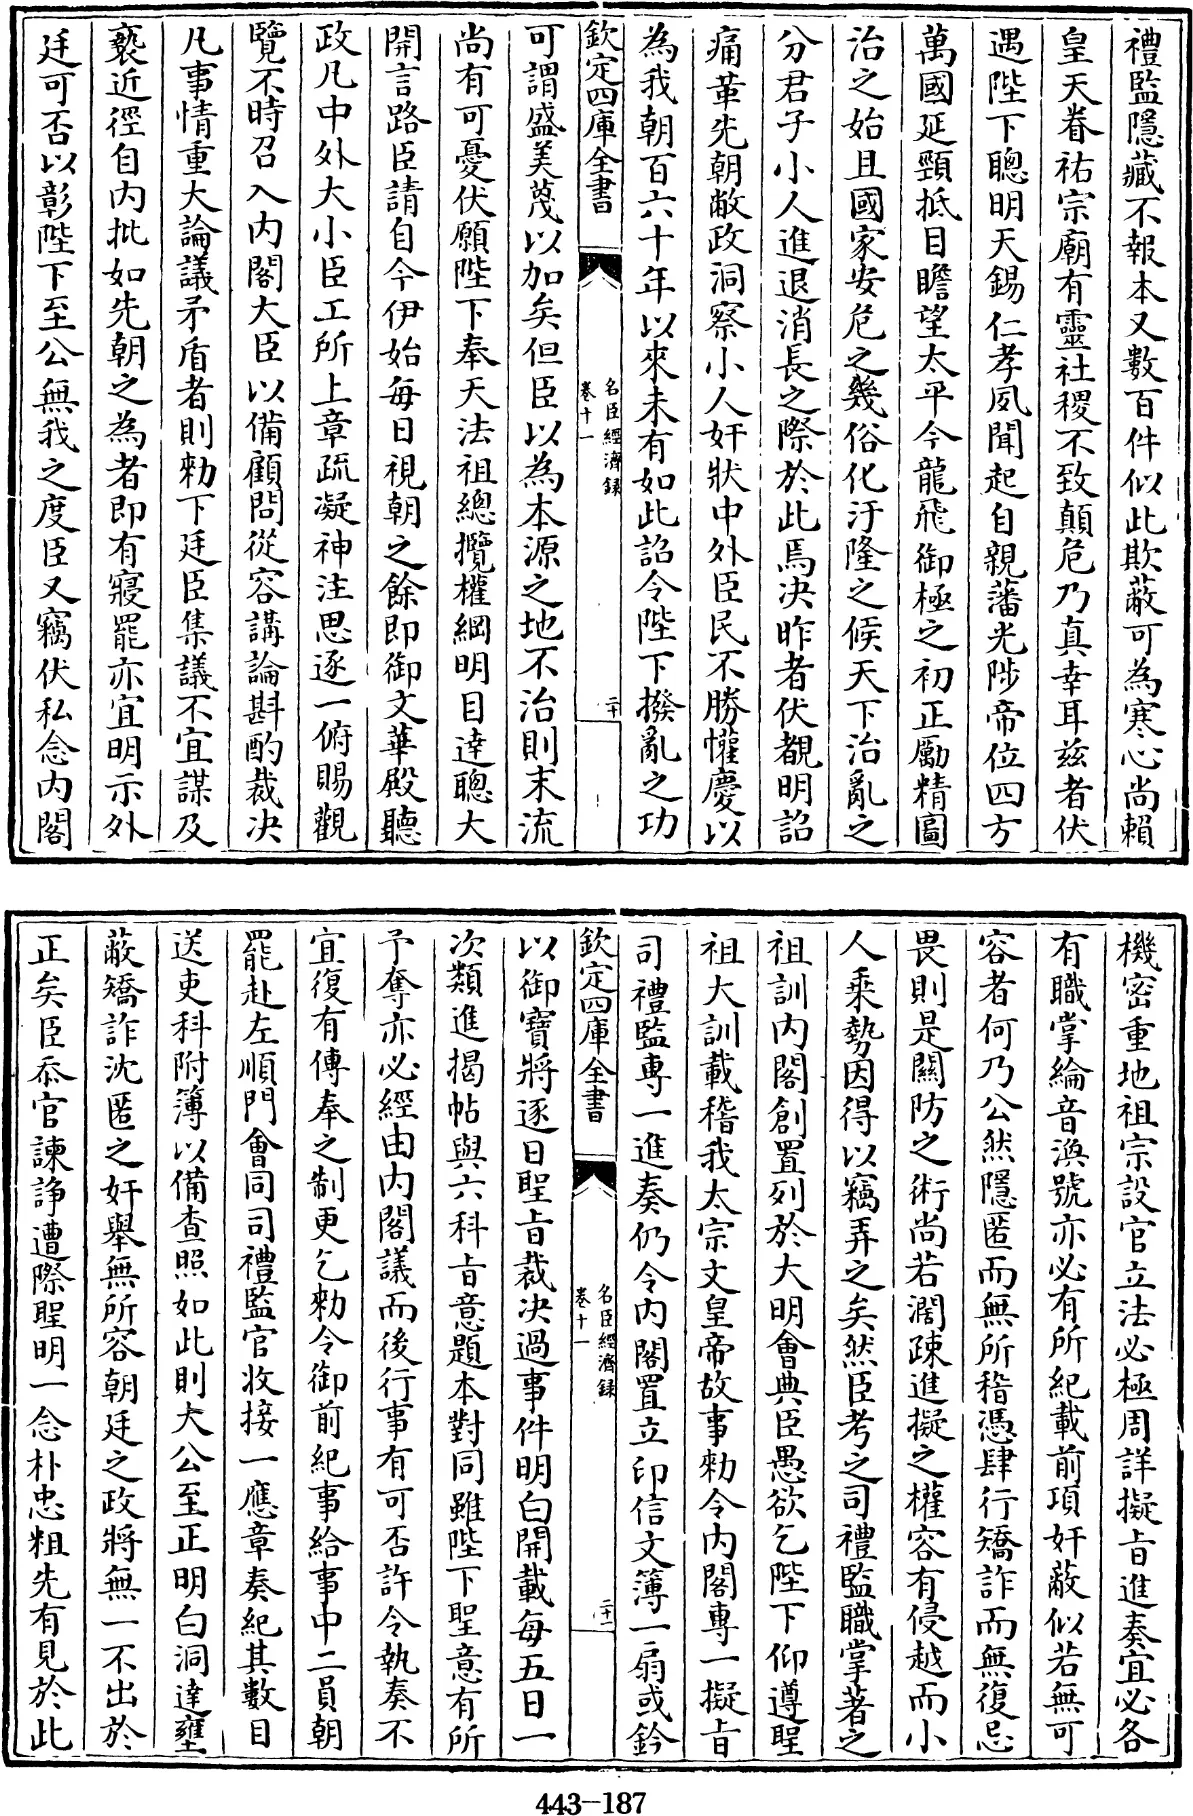 禮監隱藏不報本又數百件似此欺蔽可為寒心尚賴
皇天眷祐宗廟有靈社稷不致顛危乃真幸耳兹者伏
遇陛下聰明天錫仁孝夙聞起自親藩光陟帝位四方
萬國延頸抵目瞻望太平今龍飛御極之初正勵精圖
治之始且國家安危之幾俗化汙隆之候天下治亂之
分君子小人進退消長之際於此焉决昨者伏覩明詔
痛革先朝敝政洞察小人奸狀中外臣民不勝懽慶以
為我朝百六十年以來未有如此詔令陛下撥亂之功
欽定四庫全書
名臣經濟録
卷十一
二十
可謂盛美蔑以加矣但臣以為本源之地不治則末流
尚有可憂伏願陛下奉天法祖總攬權綱明目達聰大
開言路臣請自今伊始每日視朝之餘即御文華殿聽
政凡中外大小臣工所上章疏凝神注思逐一俯賜觀
覽不時召入内閣大臣以備顧問從容講論斟酌裁决
凡事情重大論議矛盾者則勅下廷臣集議不宜謀及
褻近徑自内批如先朝之為者即有寢罷亦宜明示外
廷可否以彰陛下至公無我之度臣又竊伏私念内閣
機密重地祖宗設官立法必極周詳擬旨進奏宜必各
有職掌綸音渙號亦必有所紀載前項奸蔽似若無可
容者何乃公然隱匿而無所稽憑肆行矯詐而無復忌
畏則是關防之術尚若濶疎進擬之權容有侵越而小
人乘勢因得以竊弄之矣然臣考之司禮監職掌著之
祖訓内閣創置列於大明會典臣愚欲乞陛下仰遵聖
祖大訓載稽我太宗文皇帝故事勅令内閣專一擬旨
司禮監專一進奏仍令内閣置立印信文簿一扇或鈐
欽定四庫全書
名臣經濟録
卷十一
二十一
以御寶將逐日聖旨裁决過事件明白開載每五日一
次類進揭帖與六科旨意題本對同雖陛下聖意有所
予奪亦必經由内閣議而後行事有可否許令執奏不
宜復有傳奉之制更乞勅令御前紀事給事中二員朝
罷赴左順門會同司禮監官收接一應章奏紀其數目
送吏科附簿以備查照如此則大公至正明白洞達壅
蔽矯詐沈匿之奸舉無所容朝廷之政將無一不出於
正矣臣忝官諫諍遭際聖明一念朴忠粗先有見於此
443-187